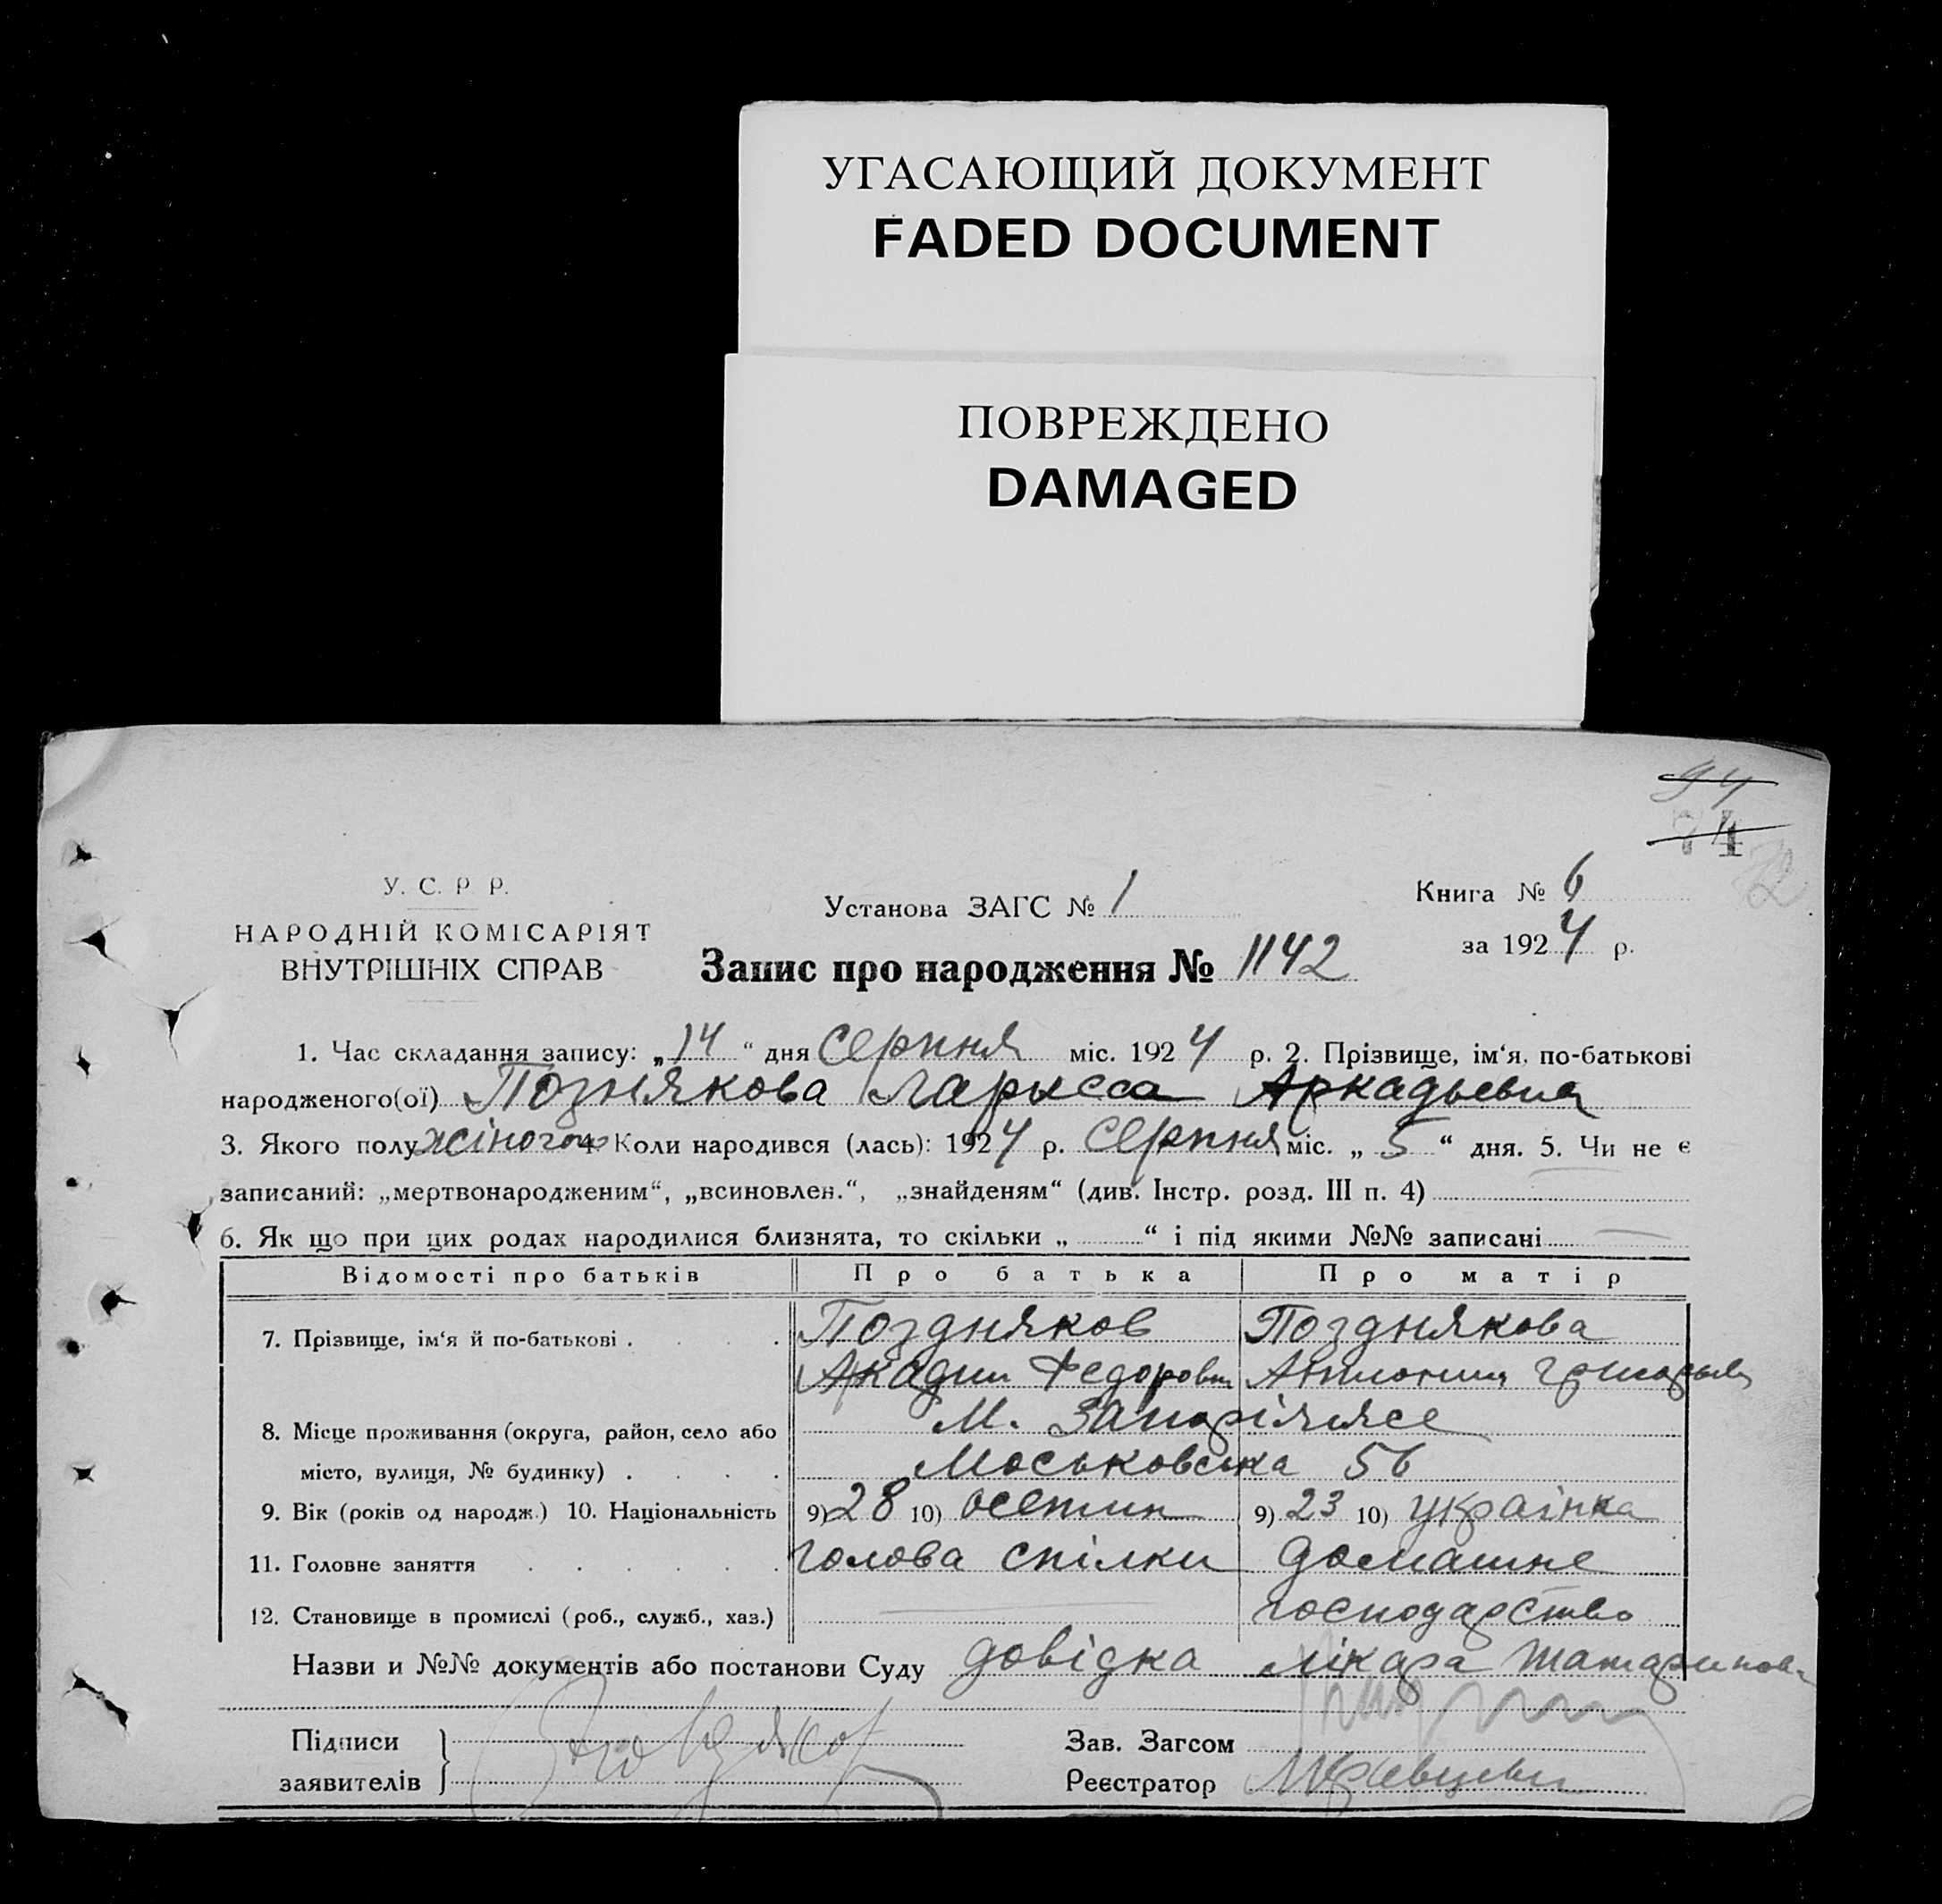 УГАСАЮЩИЙ ДОКУМЕНТ
FADED DOCUMENT
ПОВРЕЖДЕНО
DAMAGED
94
74
72
У. С. Р Р.
НАРОДНІЙ КОМІСАРІЯТ
ВНУТРІШНІХ СПРАВ
Установа ЗАГС № 1
Книга № 6
за 1924 р.
Запис про народження № 1142
1. Час складання запису: „14“ дня серпня міс. 1924 р. 2. Прізвище, ім‘я, по-батькові
народженого(ої) Позднякова Ларысса Аркадьевна
3. Якого полу жіногоо 4. Коли народився (лась): 1924 р. серпня міс. „5“ дня. 5. Чи не є
записаний: „мертвонародженим“, „всиновлен.“, „знайденям“ (див. Інстр. розд. III п. 4)
6. Як що при цих родах народилися близнята, то скільки „ “ і під якими №№ записані
Відомості про батьків Про батька Про матір
7. Прізвище, ім‘я й по-батькові . . . . Поздняков Позднякова
Федорович
8. Місце проживання (округа, район, село або М. Запоріжжє
місто, вулиця, № будинку) . . . . Моськовська 56
9. Вік (років од народж.) 10. Національність 9) 28 10) осетин 9) 23 10) українка
11. Головне заняття . . . . . . голова спілки домашне
12. Становище в промислі (роб., служб., хаз.) господарство
Назви и №№ документів або постанови Суду довідка лікара
Підписи
заявителів
Зав. Загсом
Реєстратор